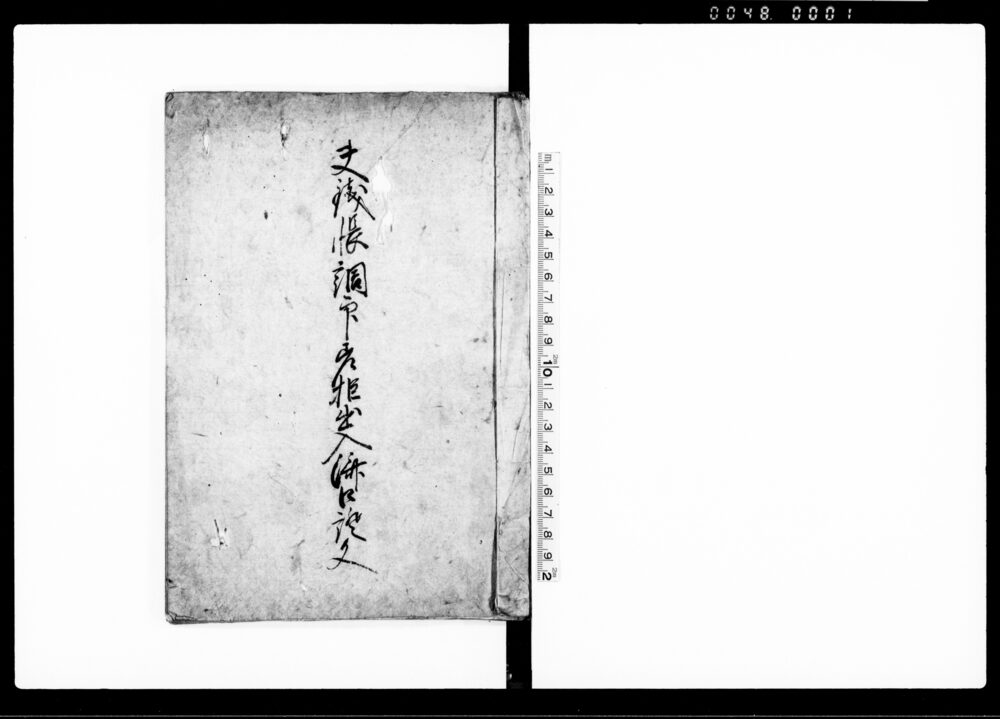 0048. 0001
夫銭帳調印差拒出入済口證文
m 1 2 3 4 5 6 7 8 9 10 1 2 3 4 5 6 7 8 9 2